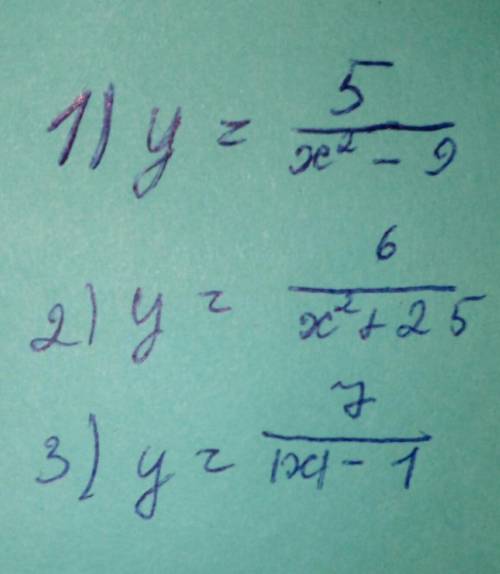 1) y = 5 / (x² - 9)
2) y = 6 / (x² + 25)
3) y = 7 / (|x| - 1)